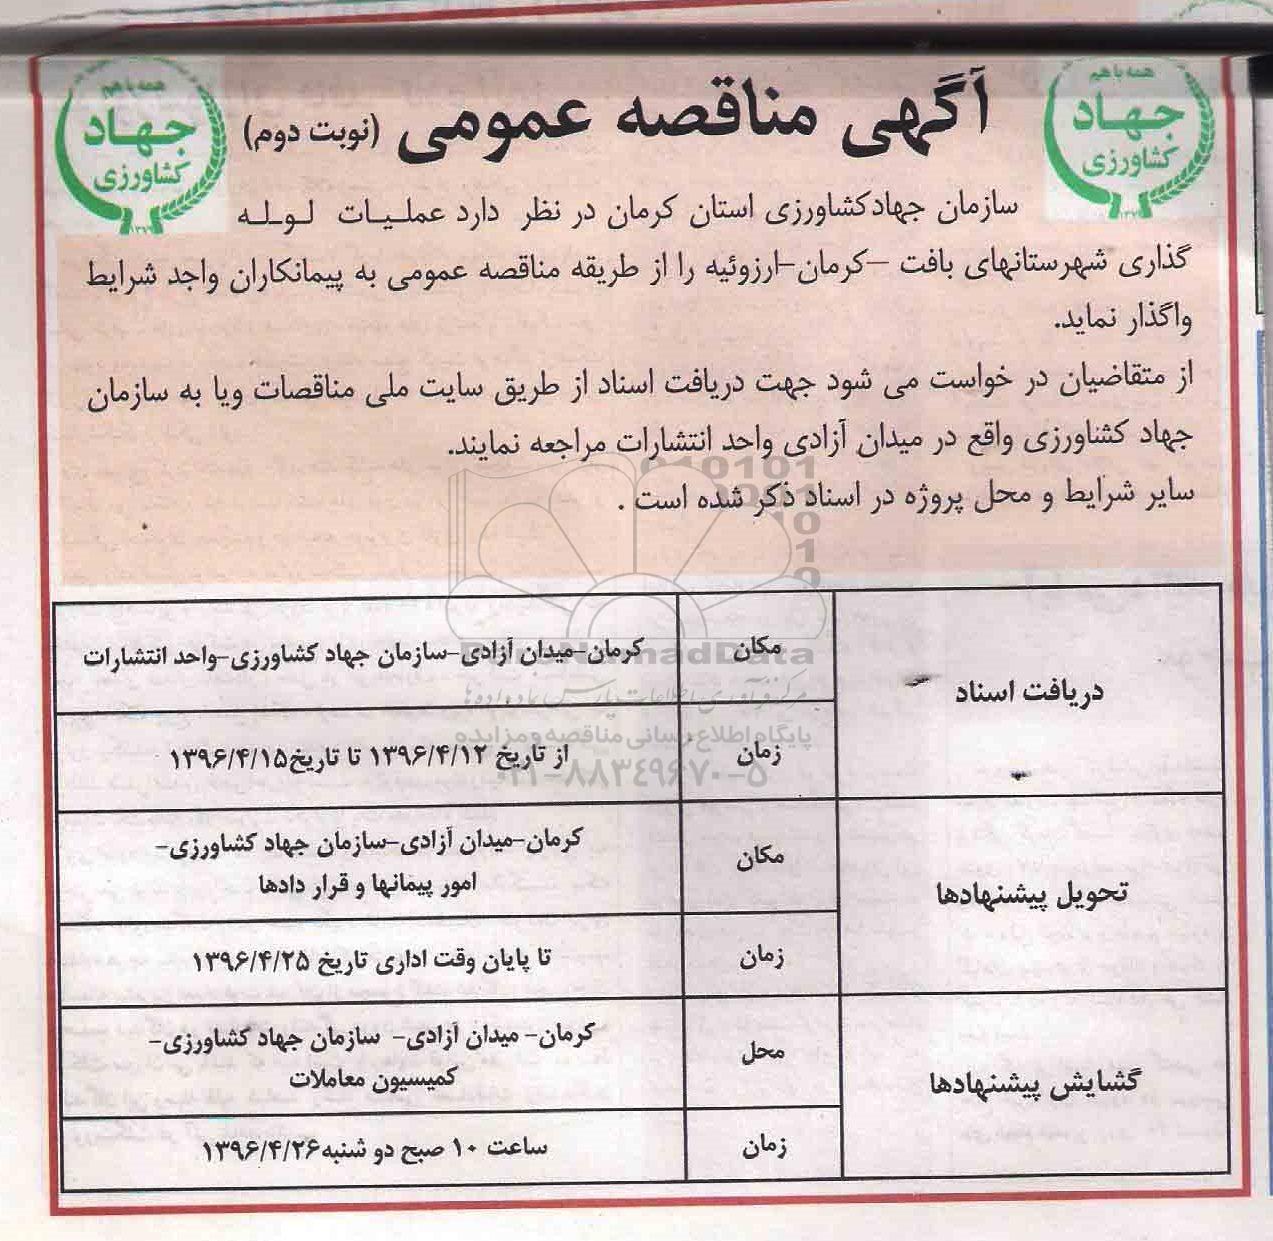 همه با هم
جهاد
کشاورزی
آگهی مناقصه عمومی (نوبت دوم)
همه با هم
جهاد
کشاورزی
سازمان جهادکشاورزی استان کرمان در نظر دارد عملیات لوله
گذاری شهرستانهای بافت –کرمان–ارزوئیه را از طریقه مناقصه عمومی به پیمانکاران واجد شرایط
واگذار نماید.
از متقاضیان در خواست می شود جهت دریافت اسناد از طریق سایت ملی مناقصات ویا به سازمان
جهاد کشاورزی واقع در میدان آزادی واحد انتشارات مراجعه نمایند.
سایر شرایط و محل پروژه در اسناد ذکر شده است .
دریافت اسناد
مکان
کرمان–میدان آزادی–سازمان جهاد کشاورزی–واحد انتشارات
زمان
از تاریخ ۱۳۹۶/۴/۱۲ تا تاریخ۱۳۹۶/۴/۱۵
تحویل پیشنهادها
مکان
کرمان–میدان آزادی–سازمان جهاد کشاورزی–
امور پیمانها و قرار دادها
زمان
تا پایان وقت اداری تاریخ ۱۳۹۶/۴/۲۵
گشایش پیشنهادها
محل
کرمان– میدان آزادی– سازمان جهاد کشاورزی–
کمیسیون معاملات
زمان
ساعت ۱۰ صبح دو شنبه۱۳۹۶/۴/۲۶
پایگاه اطلاع رسانی مناقصه و مزایده
۰۲۱-۸۸۳۴۹۶۷۰-۵